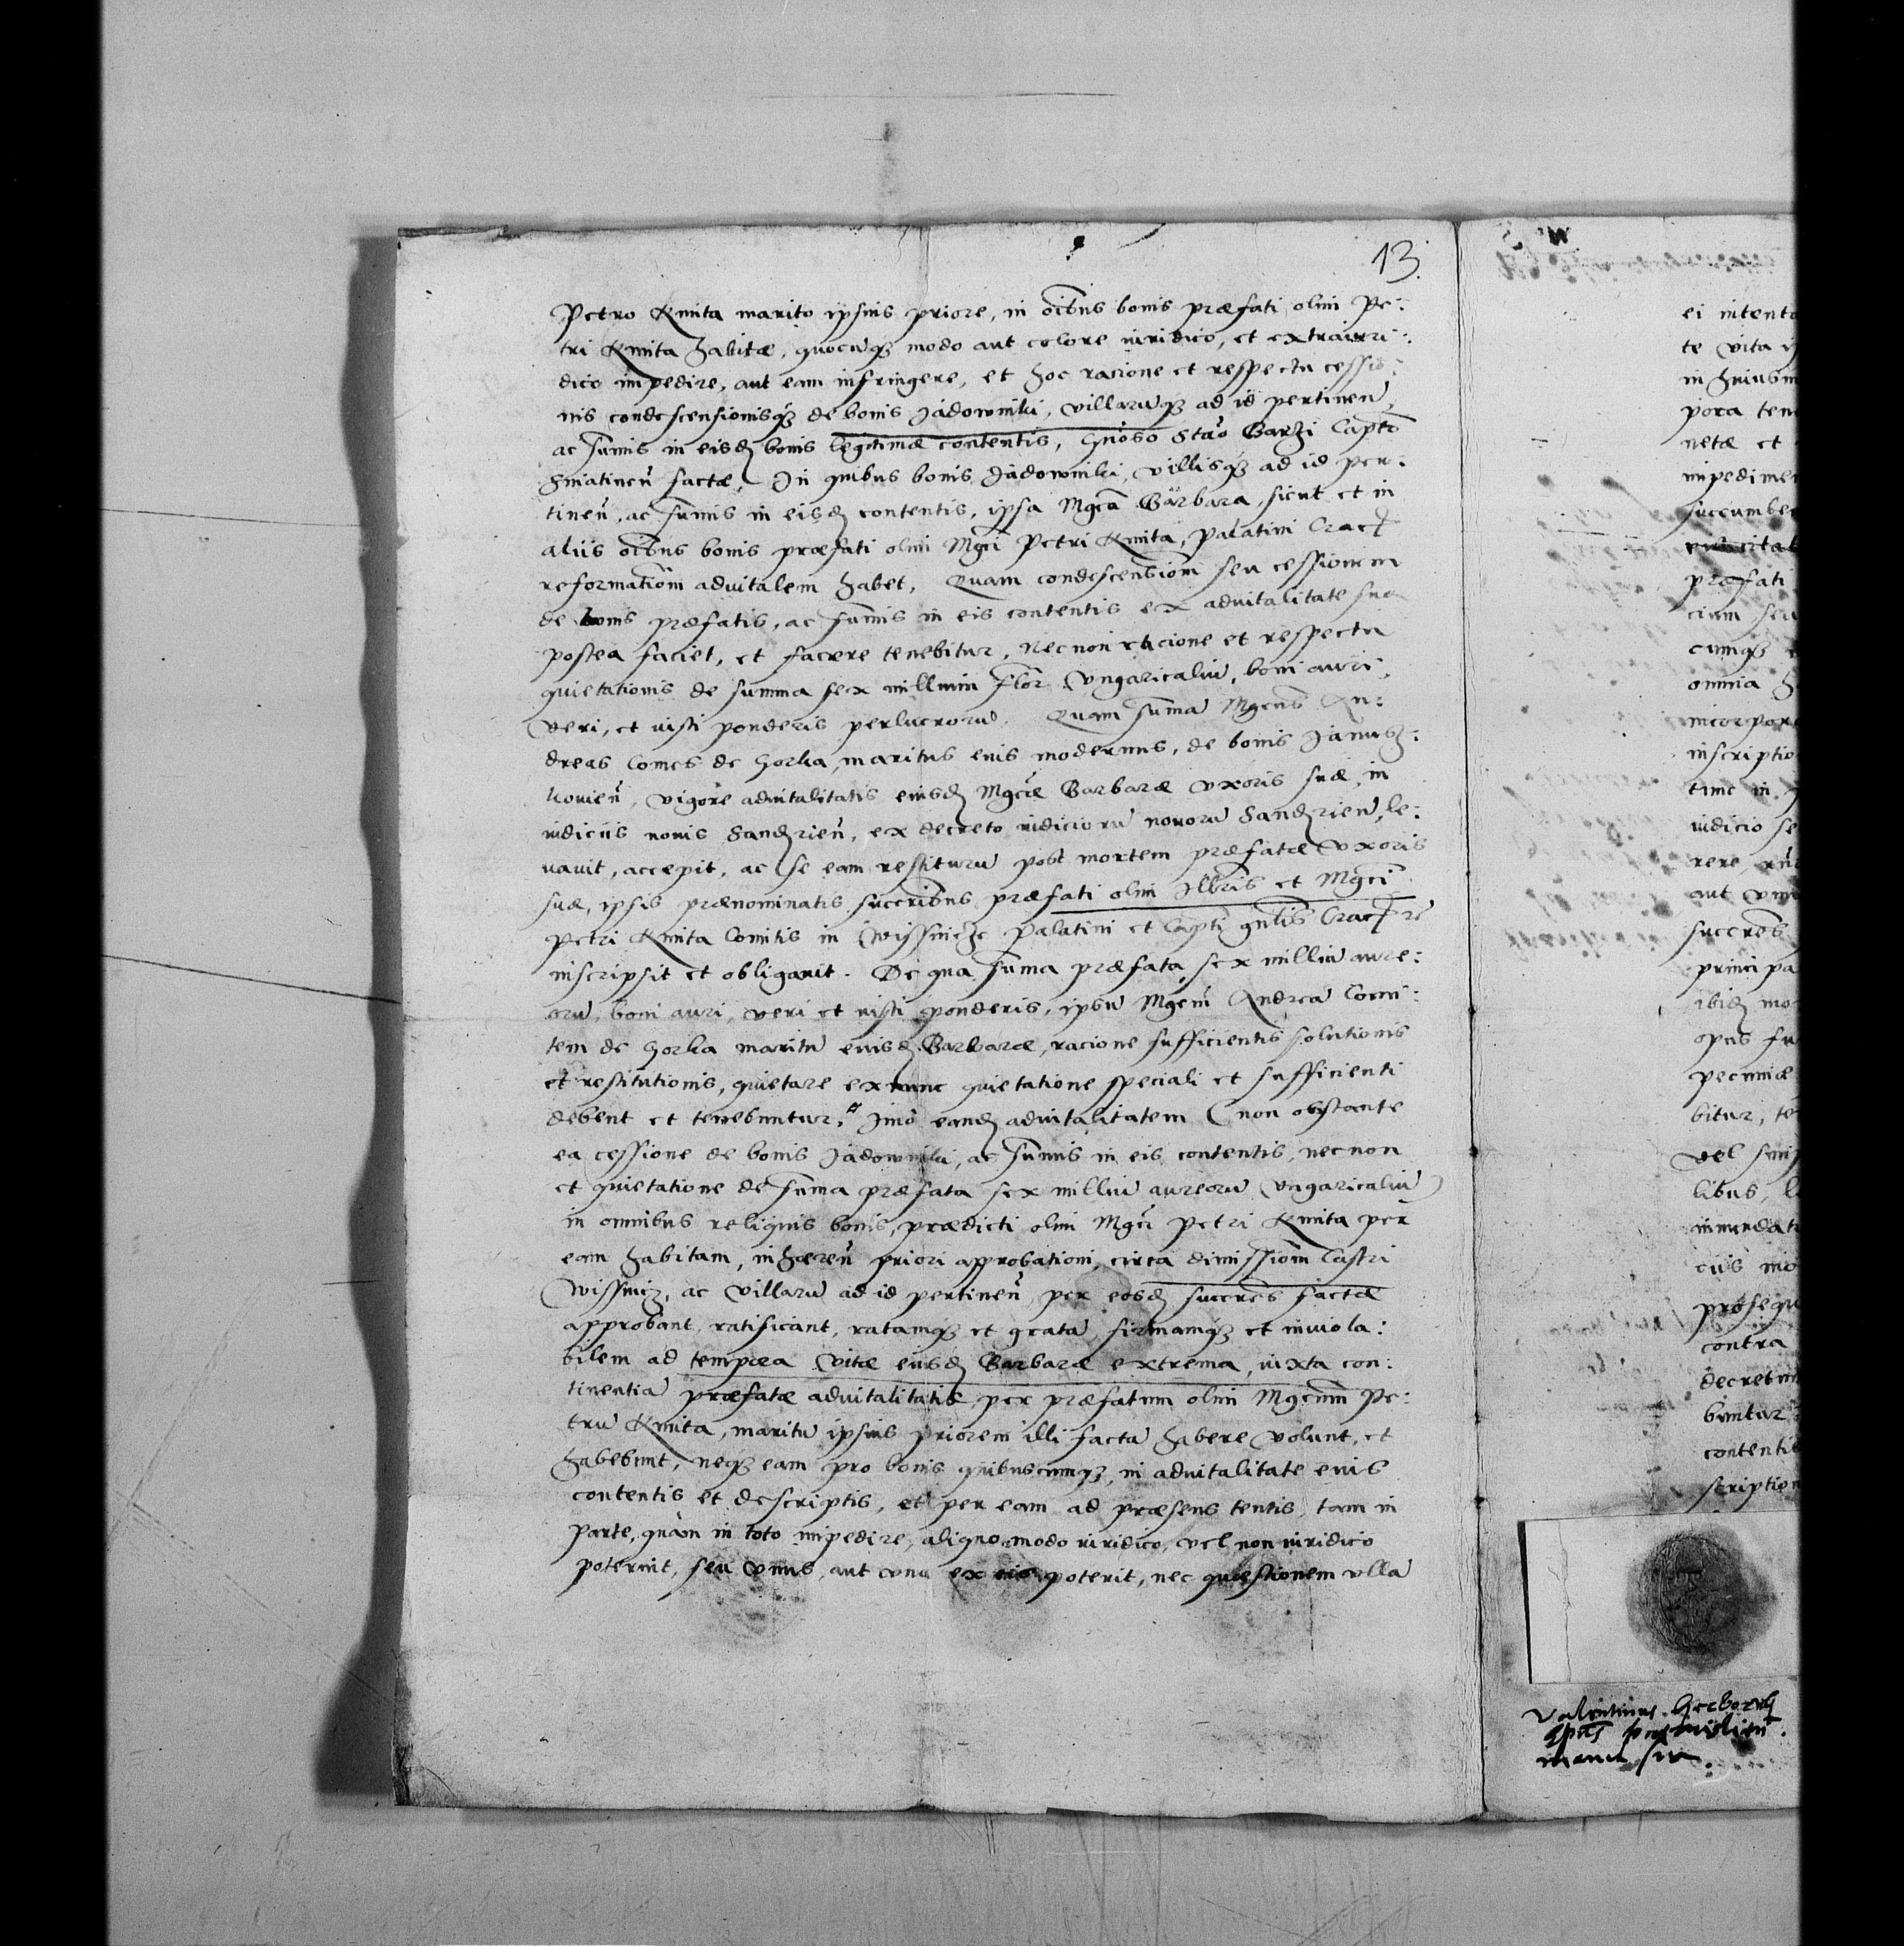 13.
Petro Kmita marito ipsius priore, in oĩbus bonis præfati olim Pe:
tri Kmita habitæ, quocunq₃ modo aut colore iuridico, et extraiuri:
dico impedire, aut eam infringere, et hoc racione et respectu cessio:
nis condescensionisq₃ de bonis Jadowniki, villarũq₃ ad id pertineñ,
ac sum̃is in eisdẽ bonis legitimæ contentis, Gñoso Stão Barzi Capto
Sniatineñ factæ, In quibus bonis Jadowniki, villisq₃ ad id per:
tineñ, ac sum̃is in eisdẽ contentis, ipsa Mgca Barbara, sicut et in
aliis oĩbus bonis præfati olim Mgci Petri Kmita, Palatini Crac
reformationẽ advitalem habet, Quam condescensionẽ seu cessionem
de bonis præfatis, ac sum̃is in eis contentis ex advitalitate sua
postea faciet, et facere tenebitur, Nec non racione et respectu
quietationis de summa sex millium flor Vngaricaliũ, boni auri,
veri, et iusti ponderis perlucrorũ. Quam sum̃a Mgcus An:
dreas Comes de Gorka, maritus eius modernus, de bonis Janusz:
kovieñ, vigore advitalitatis eiusdẽ Mgcæ Barbaræ vxoris suæ, in
iudiciis novis Sandzieñ, ex decreto iudiciorũ novorũ Sandzieñ, le:
vavit, accepit, ac se eam restiturũ post mortem præfatæ vxoris
suæ, ipsis prænominatis succeribus præfati olim Illris et Mgci
Petri Kmita Comitis in Wissnicze Palatini et Capti gnlis Crac re
inscripsit et obligavit. De qua sum̃a præfata sex milliũ aure:
orũ, boni auri, veri et iusti ponderis, ipsũ Mgcm Andreã Comi:
tem de Gorka maritũ eiusdẽ Barbaræ, racione sufficientis solutionis
et restitutionis, quietare ex nunc quietatione speciali et sufficienti
debent et tenebuntur, Imo eandẽ advitalitatem (non obstante
ea cessione de bonis Jadowniki, ac sum̃is in eis contentis, nec non
et quietatione de sum̃a præfata sex milliũ aureorũ Vngaricaliũ)
in omnibus reliquis bonis, prædicti olim Mgci Petri Kmita per
eam habitam, inhæreñ priori approbationi, circa dimissionẽ Castri
Wissnicz, ac villarũ ad id pertineñ, per eosdẽ succres factæ
approbant, ratificant, ratamq₃ et gratã, firmamq₃ et inviola:
bilem ad tempora vitæ eiusdẽ Barbaræ extrema, iuxta con:
tinentiã præfatæ advitalitatis, per præfatum olim Mgcum Pe:
trũ Kmita, maritũ ipsius priorem illi factã habere volunt, et
habebunt, neq₃ eam pro bonis quibuscunq₃, in advitalitate eius
contentis et descriptis, et per eam ad præsens tentis, tam in
parte, quàm in toto impedire, aliquo modo iuridico, vel non iuridico
poterint, seu vnus, aut vna ex eis poterit, nec quæstionem vllã
ei intento
te vita
in huius
pora
netæ et
impedime
præfati
cium seu
cumq₃
omnia
incorpor
inscriptio
tunc in
iudicio se
rere
aut
succres
principa
ibidẽ mo
opus fu
pecuniæ
bitur, te
vel
libus,
cuis
prosequ
contra
decret
buntur
contentis
scription
Valentinus Herborth
Epus premislieñ
manu sua.